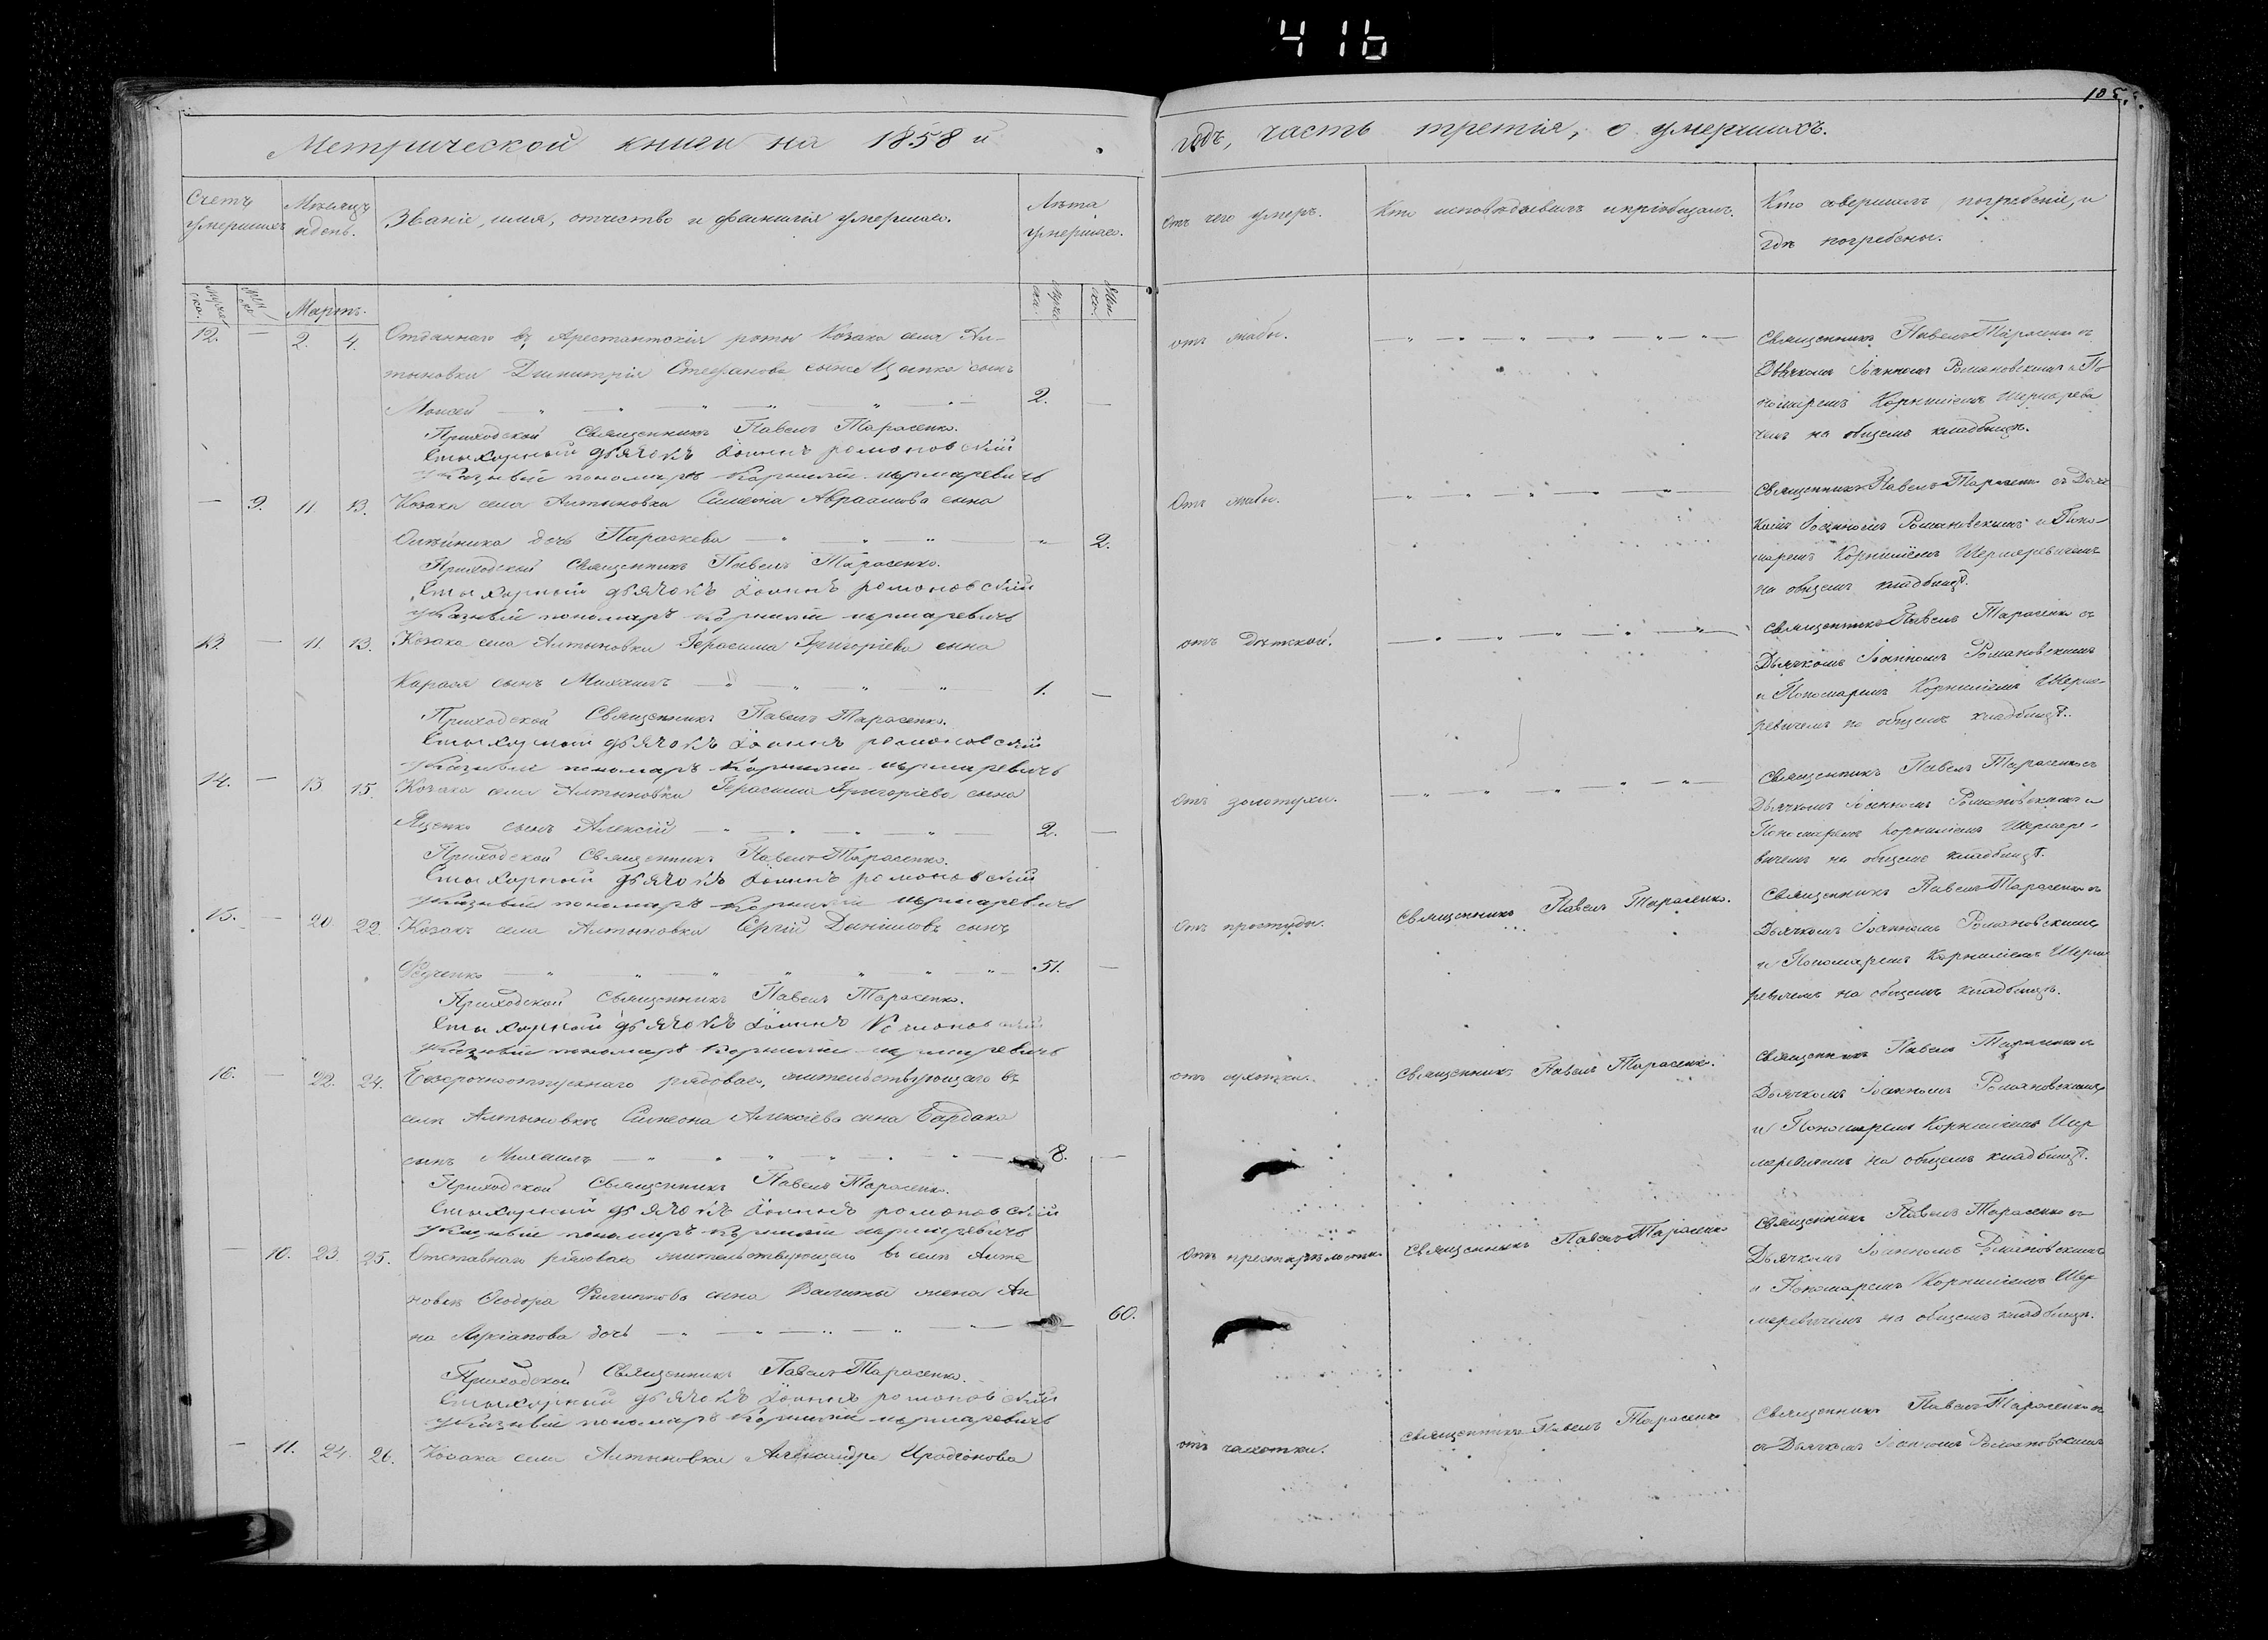 416
105.
Метрической книги на 1858й
годъ, часть третія, о умершихъ.
Счетъ умершихъ
Мѣсяцъ и день.
Званіе, имя, отчество и фамилія умершаго.
Лѣта умершаго.
Отъ чего умеръ.
Кто исповѣдывалъ и пріобщалъ.
Кто совершалъ погребеніе, и
гдѣ погребены.
Мужеска.
Женска
Мартъ.
Мужеска
Женска.
12. — 2. 4. Отданнаго въ Арестантскія роты Козака села Ал-
тыновки Димитрія Стефанова сына Цапка сынъ
Моисей 2. —
Приходской Священникъ Павелъ Тарасенко.
Стихарный дьячокъ Іоаннъ романовскій
указный пономарь Корнилій шермаревичъ
отъ жабы.
Священникъ Павелъ Тарасенко съ
Дьячкомъ Іоанномъ Романовскимъ и По-
номаремъ Корниліемъ Шермареви
чемъ на общемъ кладбищѣ.
— 9. 11 13. Козака села Алтыновки Симеона Авраамова сына
Олѣйника дочь Параскева 2.
Приходской Священникъ Павелъ Тарасенко.
Стихарный дьячокъ Іоаннъ романовскій
указный пономарь Корнилій шермаревичъ
Отъ жабы.
Священникъ Павелъ Тарасенко съ Дьяч
комъ Іоанномъ Романовскимъ и Поно-
маремъ Корниліемъ Шермаревичемъ
на общемъ кладбищѣ.
12 — 11. 13. Козака села Алтыновки Герасима Григоріева сына
Карася сынъ Михаилъ 1. —
Приходской Священникъ Павелъ Тарасенко.
Стихарный дьячокъ Іоаннъ романовскій
указный пономарь Корнилій шермаревичъ
отъ Дѣтской.
Священникъ Павелъ Тарасенко съ
Дьячкомъ Іоанномъ Романовскимъ
и Пономаремъ Корниліемъ Шерма-
ревичемъ на общемъ кладбищѣ.
14. — 13 15. Козака села Алтыновки Герасима Григоріева сына
Яценко сынъ Алексій 2. —
Приходской Священникъ Павелъ Тарасенко.
Стихарный дьячокъ Іоаннъ романовскій
указный пономарь Корнилій шермаревичъ
Отъ золотухи.
Священникъ Павелъ Тарасенко съ
Дьячкомъ Іоанномъ Романовскимъ и
Пономаремъ Корниліемъ Шермаре-
вичемъ на общемъ кладбищѣ.
15. — 20 22. Козакъ села Алтыновки Сергій Даніиловъ сынъ
Федченко 51. —
Приходской Священникъ Павелъ Тарасенко.
Стихарный дьячокъ Іоаннъ Романовскій
указный пономарь Корнилій шермаревичъ
Отъ простуды.
Священникъ Павелъ Тарасенко.
Священникъ Павелъ Тарасенко съ
Дьячкомъ Іоанномъ Романовскимъ
и Пономаремъ Корниліемъ Шерма
ревичемъ на общемъ кладбищѣ.
16. — 22. 24. Безсрочноотпускнаго рядоваго, жительствующаго въ
селѣ Алтыновкѣ Симеона Алексіева сына Бардака
сынъ Михаилъ 8. —
Приходской Священникъ Павелъ Тарасенко.
Стихарный дьячокъ Іоаннъ романовскій
указный пономарь Корнилій шермаревичъ
отъ сухотки.
Священникъ Павелъ Тарасенко.
Священникъ Павелъ Тарасенко съ
Дьячкомъ Іоанномъ Романовскимъ
и Пономаремъ Корниліемъ Шер
маревичемъ на общемъ кладбищѣ.
— 10. 23. 25. Отставнаго рядоваго жительствующаго въ селѣ Алты
новкѣ Ѳеодора Филиппова сына жена Ан
на Лукіанова дочь 60.
Приходской Священникъ Павелъ Тарасенко.
Стихарный дьячокъ Іоаннъ романовскій
указный пономарь Корнилій шермаревичъ
Отъ престарѣлости.
Священникъ Павелъ Тарасенко
Священникъ Павелъ Тарасенко съ
Дьячкомъ Іоанномъ Романовскимъ
и Пономаремъ Корниліемъ Шер
маревичемъ на общемъ кладбищѣ.
— 11. 24. 26. Козака села Алтыновки Александра Иродіонова
отъ чахотки.
Священникъ Павелъ Тарасенко
Священникъ Павелъ Тарасенко съ
съ Дьячкомъ Іоанномъ Романовскимъ